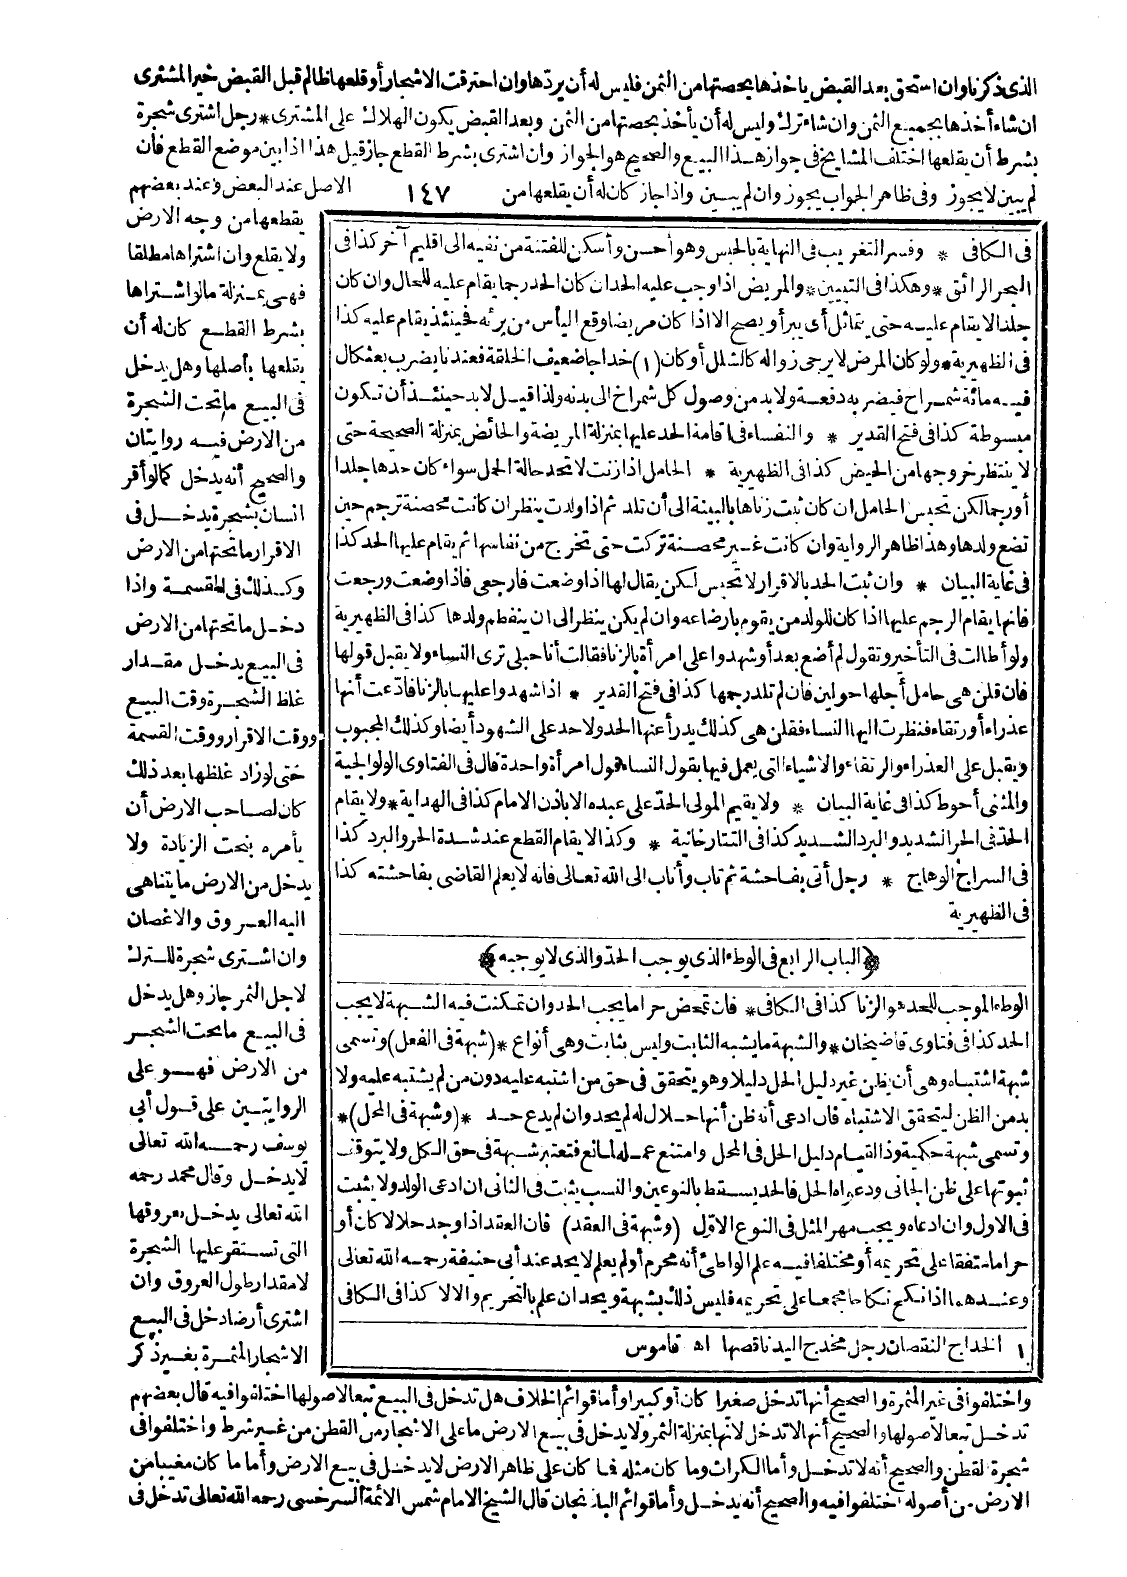 الذى ذكرنا وان استحق بعد القبض يأخذها بحصتها من الثمن فليس له أن يردّها وان احترقت الاشجار أو قلعها ظالم قبل القبض خير المشترى
ان شاء أخذها بجميع الثمن وان شاء ترك وليس له أن يأخذ بحصتها من الثمن وبعد القبض يكون الهلاك على المشترى * رجل اشترى شجرة
بشرط أن يقلعها اختلف المشايخ فى جواز هذا البيع والصحيح هو الجواز وان اشترى بشرط القطع جاز قيل هذا اذا بين موضع القطع فان
لم يبين لا يجوز وفى ظاهر الجواب يجوز وان لم يبين واذا جاز كان له أن يقلعها من
١٤٧
الاصل عند البعض وعند بعضهم
يقطعها من وجه الارض
ولا يقلع وان اشتراها مطلقا
فهى بمنزلة ما لو اشتراها
بشرط القطع كان له أن
يقلعها بأصلها وهل يدخل
فى البيع ما تحت الشجرة
من الارض فيه روايتان
والصحيح أنه يدخل كما لو أقر
انسان بشجرة يدخل فى
الاقرار ما تحتها من الارض
وكذلك فى القسمة واذا
دخل ما تحتها من الارض
فى البيع يدخل مقدار
غلظ الشجرة وقت البيع
ووقت الاقرار ووقت القسمة
حتى لو زاد غلظها بعد ذلك
كان لصاحب الارض أن
يأمره بنحت الزيادة ولا
يدخل من الارض ما يتناهى
اليه العروق والاغصان
وان اشترى شجرة للترك
لاجل الثمر جاز وهل يدخل
فى البيع ما تحت الشجر
من الارض فهو على
الروايتين على قول أبى
يوسف رحمه الله تعالى
لا يدخل وقال محمد رحمه
الله تعالى يدخل بعروقها
التى تستقر عليها الشجرة
لا مقدار طول العروق وان
اشترى أرضا دخل فى البيع
الاشجار المثمرة بغير ذكر
فى الكافى * وفسر التغريب فى النهاية بالحبس وهو أحسن وأسكن للفتنة من نفيه الى اقليم آخر كذا فى
البحر الرائق * وهكذا فى التبيين * والمريض اذا وجب عليه الحد ان كان الحد رجما يقام عليه للحال وان كان
جلدا لا يقام عليه حتى يتماثل أى يبرأ ويصح الا اذا كان مريضا وقع اليأس من برئه فحينئذ يقام عليه كذا
فى الظهيرية * ولو كان المرض لا يرجى زواله كالشلل أو كان (١) خداجا ضعيف الخلقة فعندنا يضرب بعثكال
فيه مائة شمراخ فيضر به دفعة ولا بد من وصول كل شمراخ الى بدنه ولذا قيل لا بد حينئذ أن تكون
مبسوطة كذا فى فتح القدير * والنفساء فى اقامة الحد عليها بمنزلة المريضة والحائض بمنزلة الصحيحة حتى
لا ينتظر خروجها من الحيض كذا فى الظهيرية * الحامل اذا زنت لا تحد حالة الحمل سواء كان حدها جلدا
أو رجما لكن تحبس الحامل ان كان ثبت زناها بالبينة الى أن تلد ثم اذا ولدت ينظر ان كانت محصنة ترجم حين
تضع ولدها وهذا ظاهر الرواية وان كانت غير محصنة تركت حتى تخرج من نفاسها ثم يقام عليها الحد كذا
فى غاية البيان * وان ثبت الحد بالاقرار لا تحبس لكن يقال لها اذا وضعت فارجعى فاذا وضعت ورجعت
فانها يقام الرجم عليها اذا كان للولد من يقوم بارضاعه وان لم يكن ينظر الى ان ينفطم ولدها كذا فى الظهيرية
ولو أطالت فى التأخير وتقول لم أضع بعد أو شهدوا على امرأة بالزنا فقالت أنا حبلى ترى النساء ولا يقبل قولها
فان قلن هى حامل أجلها حولين فان لم تلد رجمها كذا فى فتح القدير * اذا شهدوا عليها بالزنا فادّعت أنها
عذراء أو رتقاء فنظرت اليها النساء فقلن هى كذلك يدرأ عنها الحد ولا حد على الشهود أيضا وكذلك المجبوب
ويقبل على العذراء والرتقاء والاشياء التى يعمل فيها بقول النساء قول امرأة واحدة قال فى الفتاوى الولوالجية
والمثنى أحوط كذا فى غاية البيان * ولا يقيم المولى الحدّ على عبده الا باذن الامام كذا فى الهداية * ولا يقام
الحدّ فى الحر الشديد والبرد الشديد كذا فى التتارخانية * وكذا لا يقام القطع عند شدة الحر والبرد كذا
فى السراج الوهاج * رجل أتى بفاحشة ثم تاب وأناب الى الله تعالى فانه لا يعلم القاضى بفاحشته كذا
فى الظهيرية
﴿الباب الرابع فى الوطء الذى يوجب الحدّ والذى لا يوجبه﴾
الوطء الموجب للحد هو الزنا كذا فى الكافى * فان تمحض حراما يجب الحد وان تمكنت فيه الشبهة لا يجب
الحد كذا فى فتاوى قاضيخان * والشبهة ما يشبه الثابت وليس بثابت وهى أنواع * (شبهة فى الفعل) وتسمى
شبهة اشتباه وهى أن يظن غير دليل الحل دليلا وهو يتحقق فى حق من اشتبه عليه دون من لم يشتبه عليه ولا
بد من الظن ليتحقق الاشتباه فان ادعى أنه ظن أنها حلال له لم يحد وان لم يدع حد * (وشبهة فى المحل) *
وتسمى شبهة حكمية وذا القيام دليل الحل فى المحل وامتنع عمله لمانع فتعتبر شبهة فى حق الكل ولا يتوقف
ثبوتها على ظن الجانى ودعواه الحل فالحد يسقط بالنوعين والنسب يثبت فى الثانى ان ادعى الولد ولا يثبت
فى الاول وان ادعاه ويجب مهر المثل فى النوع الاوّل (وشبهة فى العقد) فان العقد اذا وجد حلالا كان أو
حراما متفقا على تحريمه أو مختلفا فيه علم الواطئ أنه محرم أو لم يعلم لا يحد عند أبى حنيفة رحمه الله تعالى
وعندهما اذا نكح نكاحا مجمعا على تحريمه فليس ذلك بشبهة ويحد ان علم بالتحريم والا لا كذا فى الكافى
١ الخداج النقصان رجل مخدج اليد ناقصها اه قاموس
واختلفوا فى غير المثمرة والصحيح أنها تدخل صغيرا كان أو كبيرا وأما قوائم الخلاف هل تدخل فى البيع تبعا لاصولها اختلفوا فيه قال بعضهم
تدخل تبعا لاصولها والصحيح أنها لا تدخل لانها بمنزلة الثمر ولا يدخل فى بيع الارض ما على الاشجار من القطن من غير شرط واختلفوا فى
شجرة القطن والصحيح أنه لا تدخل وأما الكراث وما كان مثله فما كان على ظاهر الارض لا يدخل فى بيع الارض وأما ما كان مغيبا من
الارض من أصوله اختلفوا فيه والصحيح أنه يدخل وأما قوائم الباذنجان قال الشيخ الامام شمس الائمة السرخسى رحمه الله تعالى تدخل فى